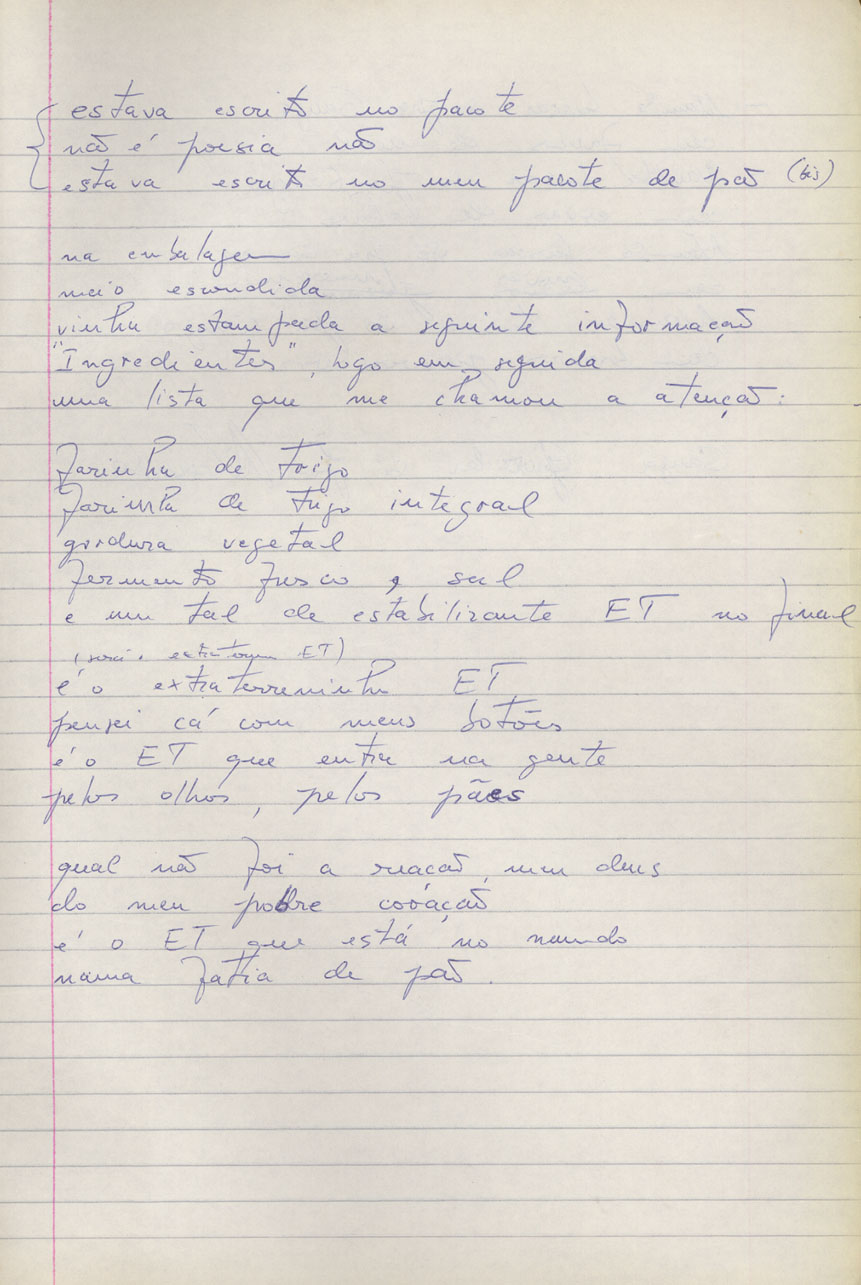 estava escrito no pacote
não é poesia não
estava escrito no meu pacote de pão (bis)
na embalagem
meio escondida
vinha estampada a seguinte informação
"Ingredientes", logo em seguida
uma lista que me chamou a atenção:
farinha de trigo
farinha de trigo integral
gordura vegetal
fermento fresco, sal
e um tal de estabilizante ET no final
ET)
é o extraterreninho ET
pensei cá com meus botões
é o ET que entra na gente
pelos olhos, pelos pães
qual não foi a reação, meu deus
do meu pobre coração
é o ET que está no mundo
numa fatia de pão.